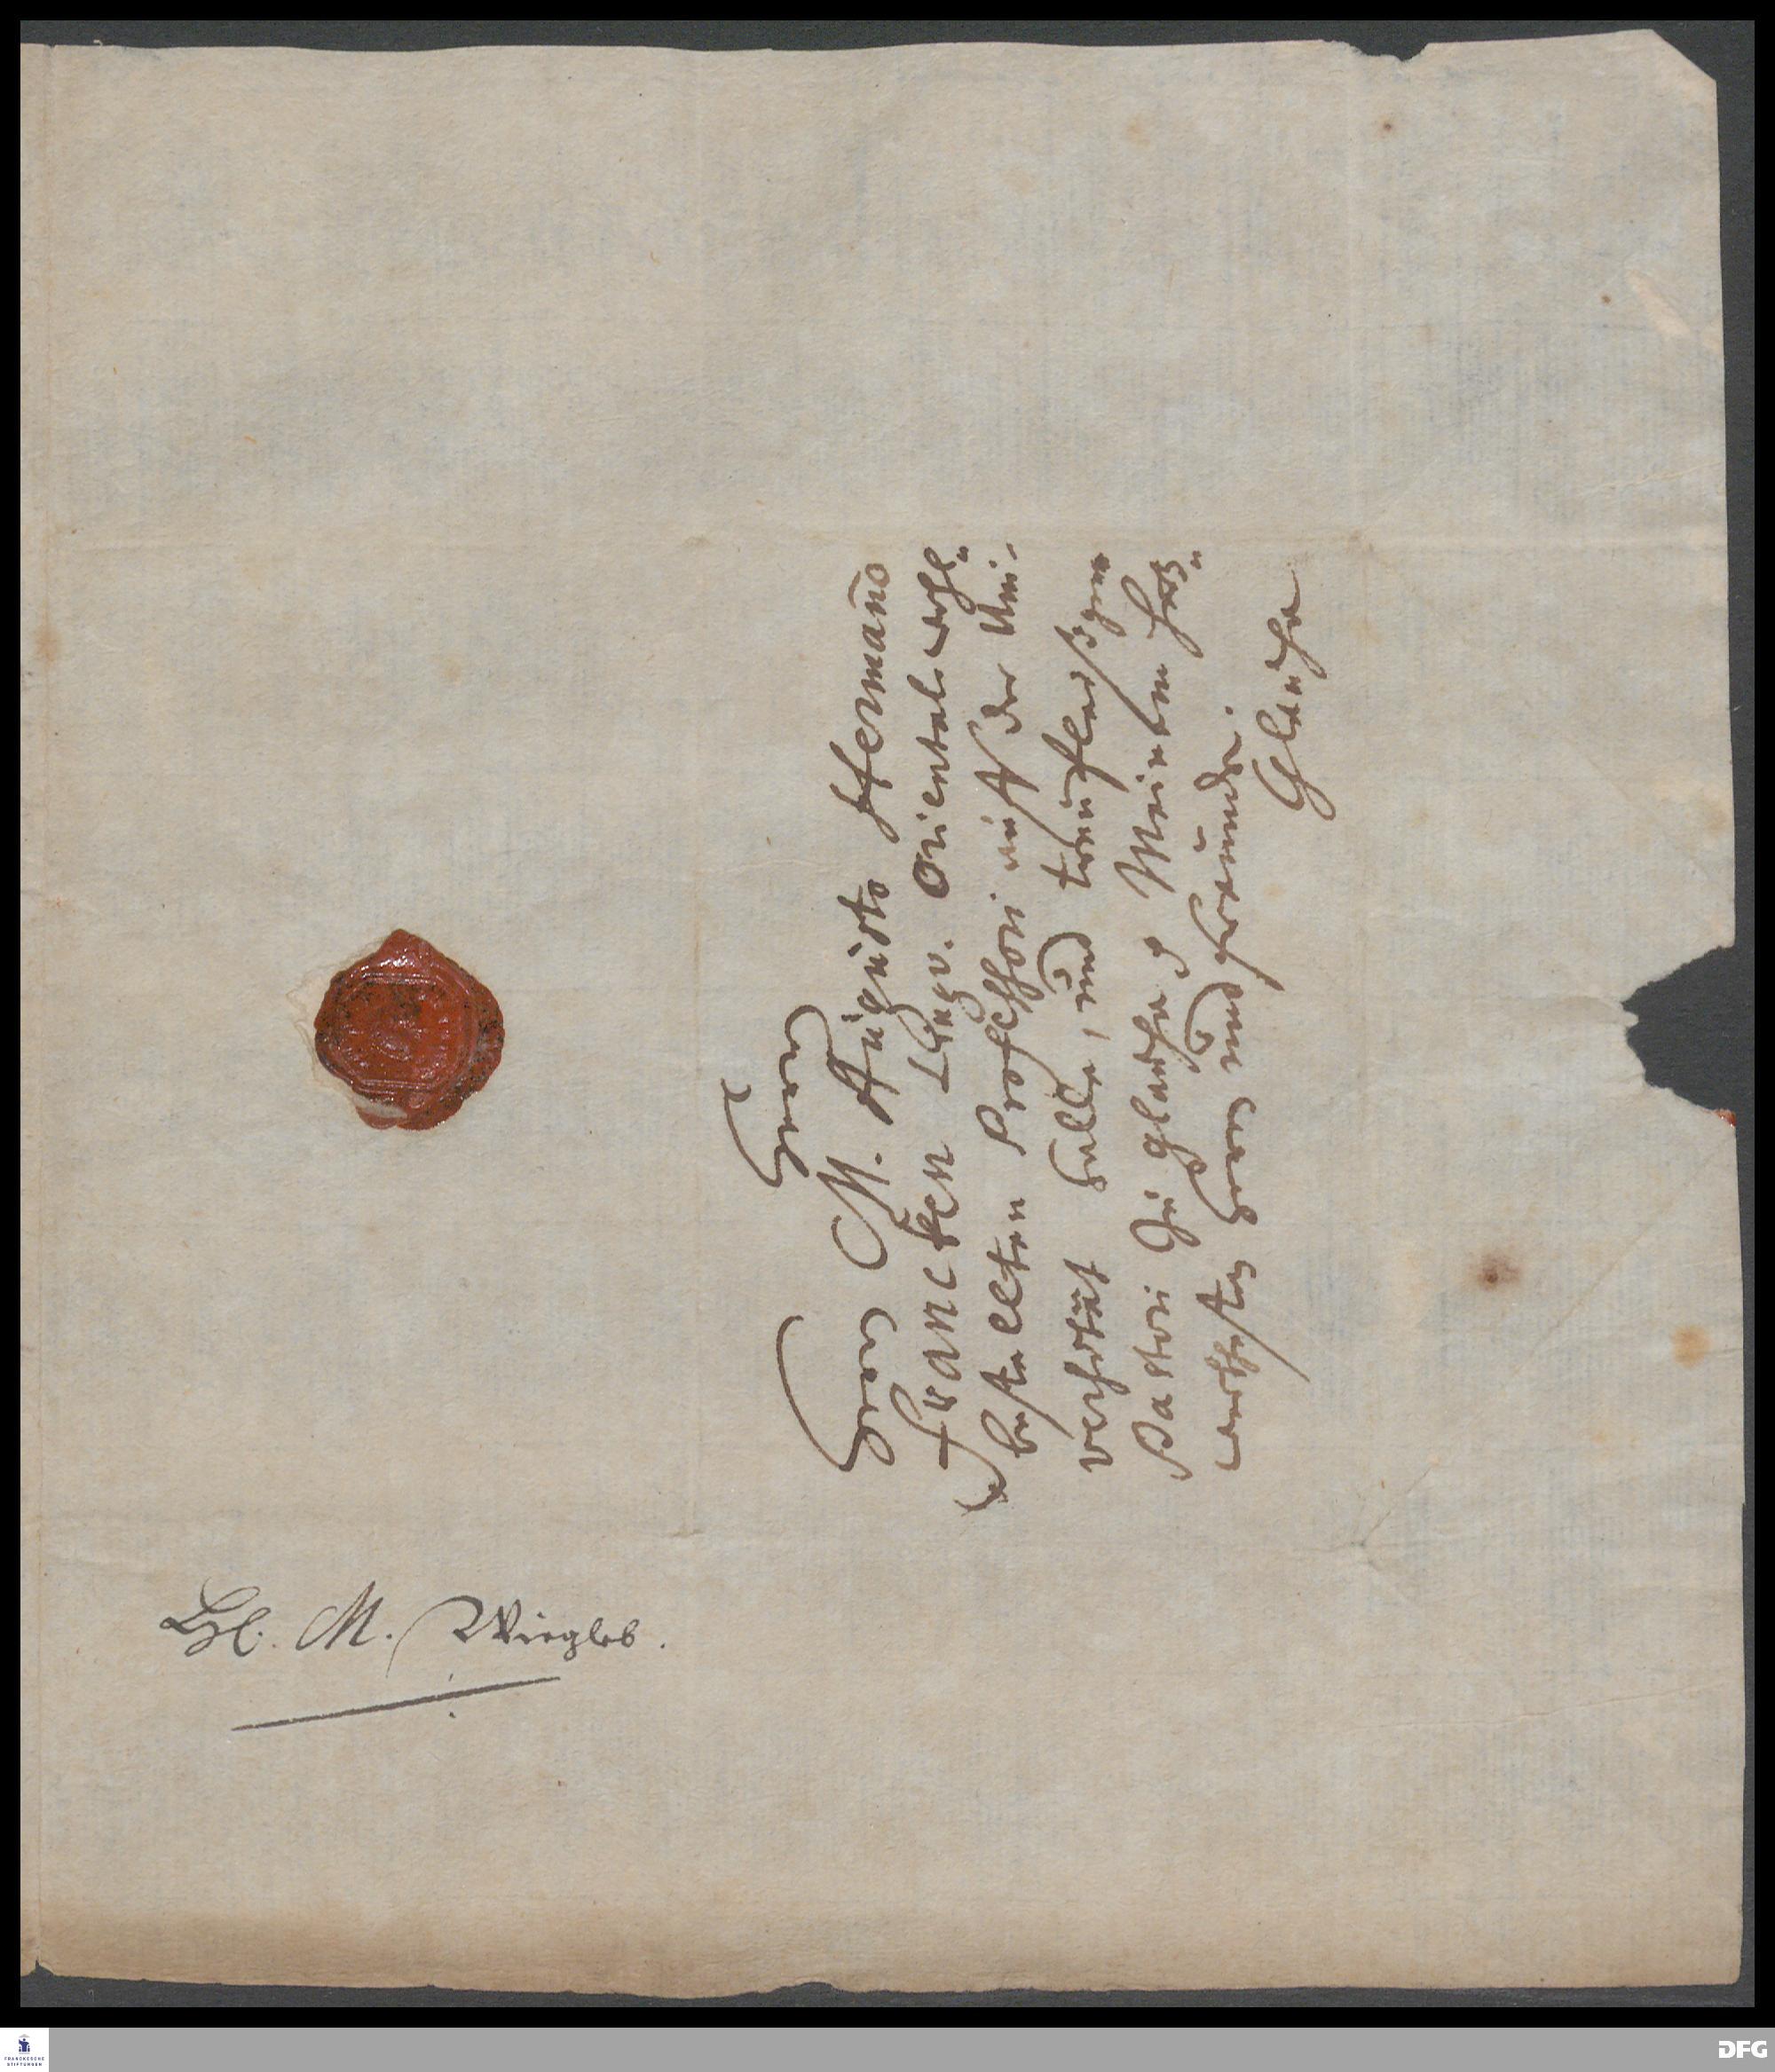 Herrn
Herrn M. Augusto Hermanno
Francken Lingv. Oriental. wohl-
bestellten Professori auff der Uni-
versität Halle, und treufleißigen
Pastori zu Glaucha, Meinem Hoch-
werthesten Herrn und Freunde.
Glaucha
M. Wiegleb.
FRANCKESCHE
STIFTUNGEN
DFG